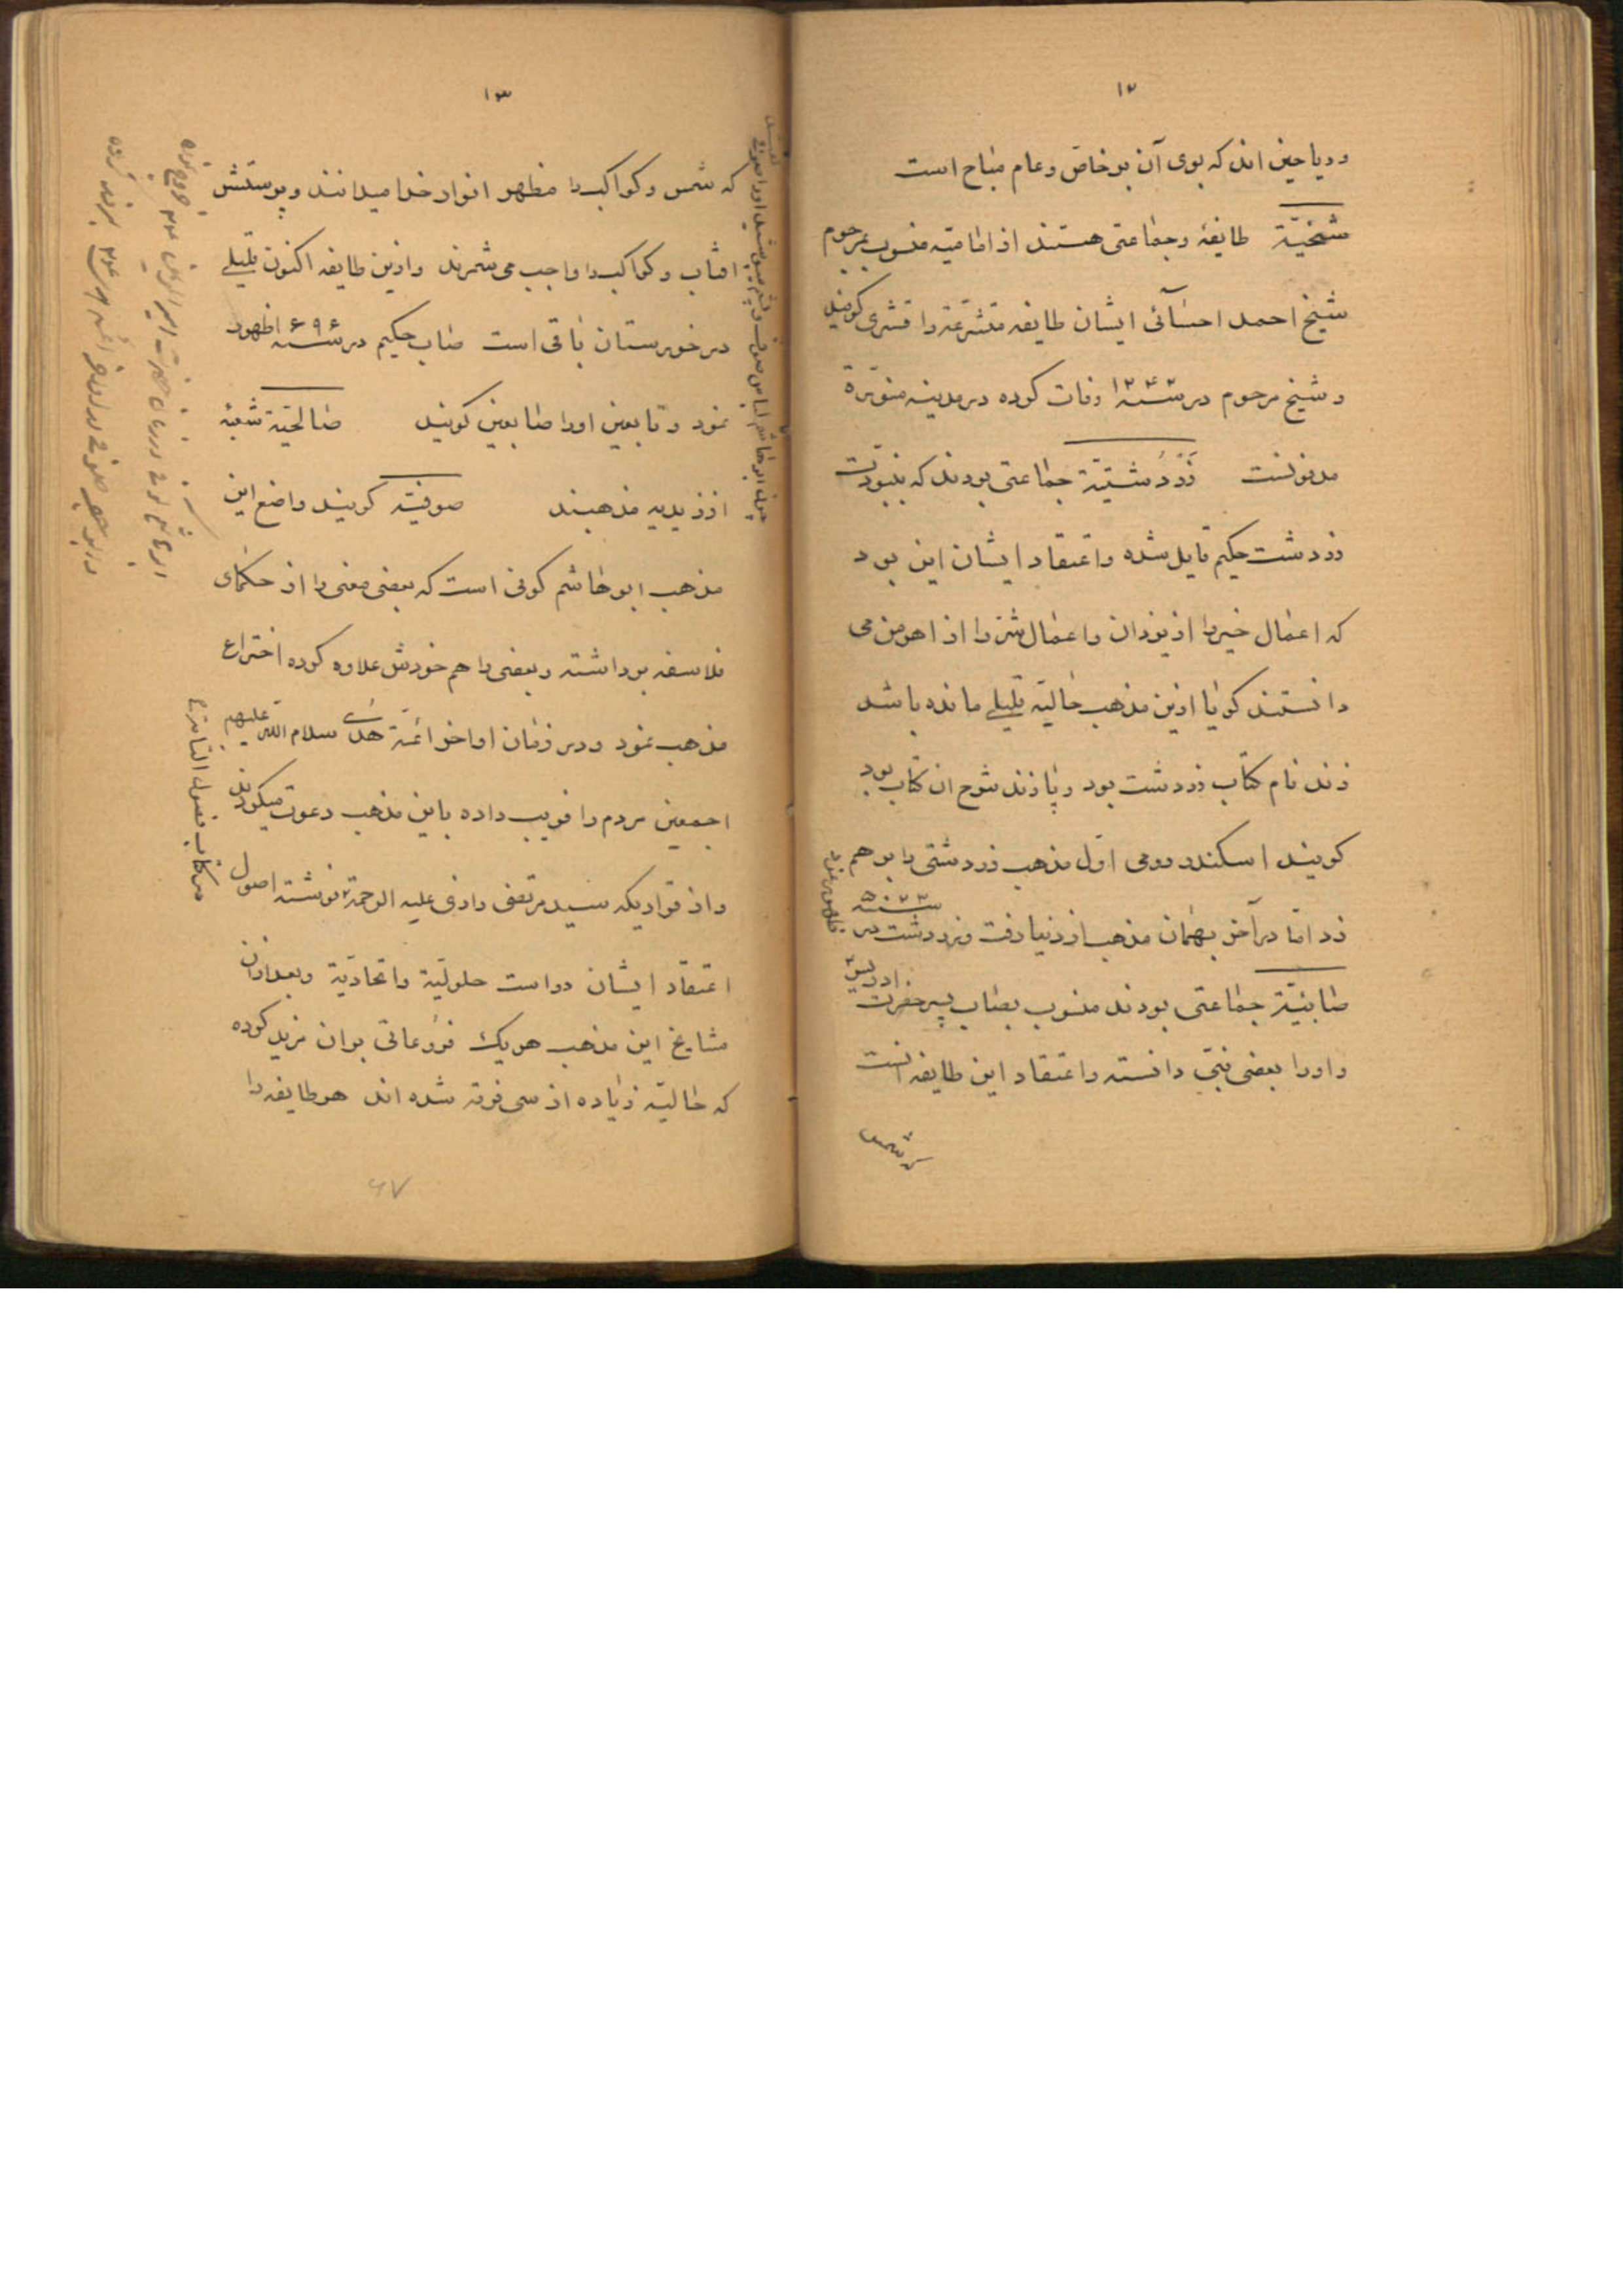 ۱۲
و ریاحین اند که بوی آن بر خاص و عام مباح است
شیخیّة طایفهٔ و جماعتی هستند از امامیّه منسوب بمرحوم
شیخ احمد احسآئی ایشان طایفه متشرعة را قشری کویند
و شیخ مرحوم در سنه ۱۲۴۲ وفات کرده در مدینه منوّرة
مدفونست زردشتیّة جماعتی بودند که بنبوّت
زردشت حکیم قایل شده و اعتقاد ایشان این بود
که اعمال خیر را از یزدان و اعمال شرّ را از اهرمن می
دانستند کویا ازین مذهب حالیّه قلیلی مانده باشد
زند نام کتاب زردشت بود و پازند شرح ان کتاب بود
کویند اسکندر رومی اوّل مذهب زردشتی را بر هم
زد امّا در آخر بهمان مذهب از دنیا رفت و زردشت در سنه ۵۰۲۳
ظهور نمود
صابئیّة جماعتی بودند منسوب بصاب پسر حضرت ادریس
و اورا بعضی نبیّ دانسته و اعتقاد این طایفه انست
که شمس
۱۳
که شمس و کواکب را مظهر انوار خدا میدانند و پرستش
افتاب و کواکب را واجب می شمرند و ازین طایفه اکنون قلیلی
در خوزستان باقی است صاب حکیم در سنه ۶۹۶ اظهور
نمود و تابعین اورا صابعین کویند صالحیّة شعبهٔ
از زیدیه مذهبند صوفیّه کویند واضع این
مذهب ابو هاشم کوفی است که بعضی معنی را از حکمای
فلاسفه برداشته و بعضی را هم خودش علاوه کرده اختراع
مذهب نمود و در زمان اواخر ائمّة هدی سلام الله علیهم
اجمعین مردم را فریب داده باین مذهب دعوت میکردند
و از قراریکه سید مرتضی رازی علیه الرحمة نوشته اصول
در کتاب فصول التامه
اعتقاد ایشان دو است حلولیّة و اتحادیّة و بعد از ان
مشایخ این مذهب هر یک فروعاتی بر ان مزید کرده
که حالیّه زیاده از سی فرقه شده اند هر طایفه را
چون ابو هاشم لباس صوف و پشم میپوشید اورا صوفی
۶۷